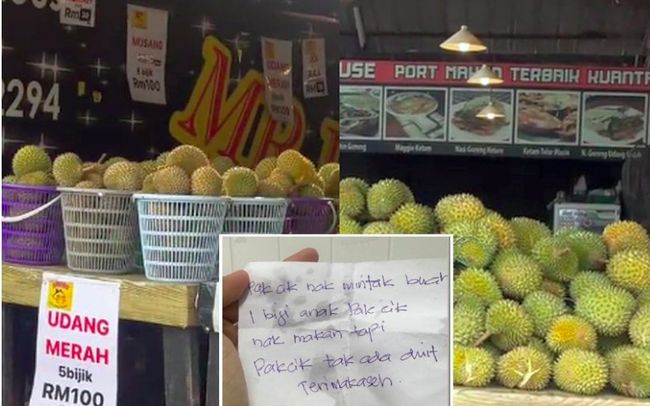 RM38
MUSANG
5 bijik
RM100
UDANG
2294
MDR
USE PORT MAKAN TERBAIK KUANTA
Maggie Ketam
Nasi Goreng Ketam
Ketam Telur Masin
N. Goreng Udang
UDANG
MERAH
5bijik
RM100
Pakcik nak mintak buah
1 biji anak Pakcik
nak makan tapi
Pakcik tak ada duit
Terimakaseh.